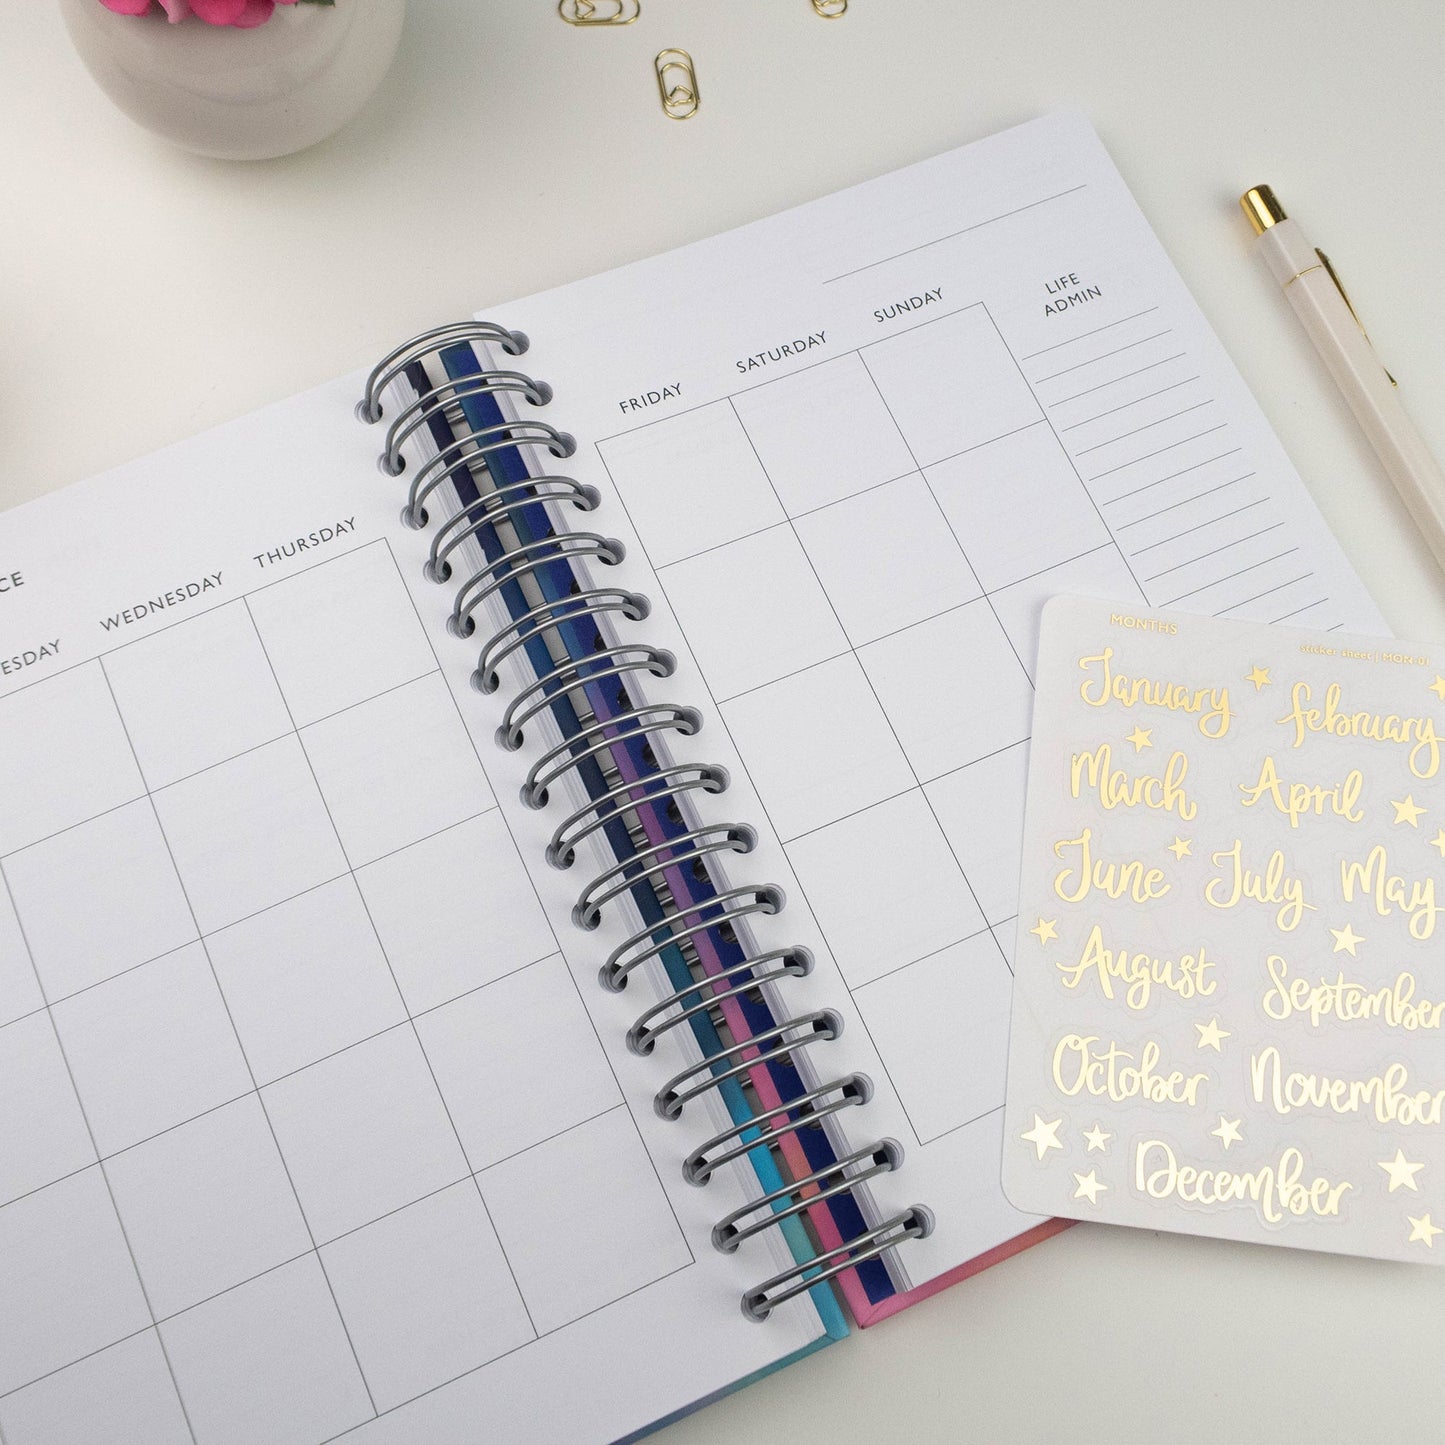 CE
ESDAY
WEDNESDAY
THURSDAY
FRIDAY
SATURDAY
SUNDAY
LIFE
ADMIN
MONTHS
sticker sheet | MON-01
January
february
March
April
June
July
May
August
September
October
November
December